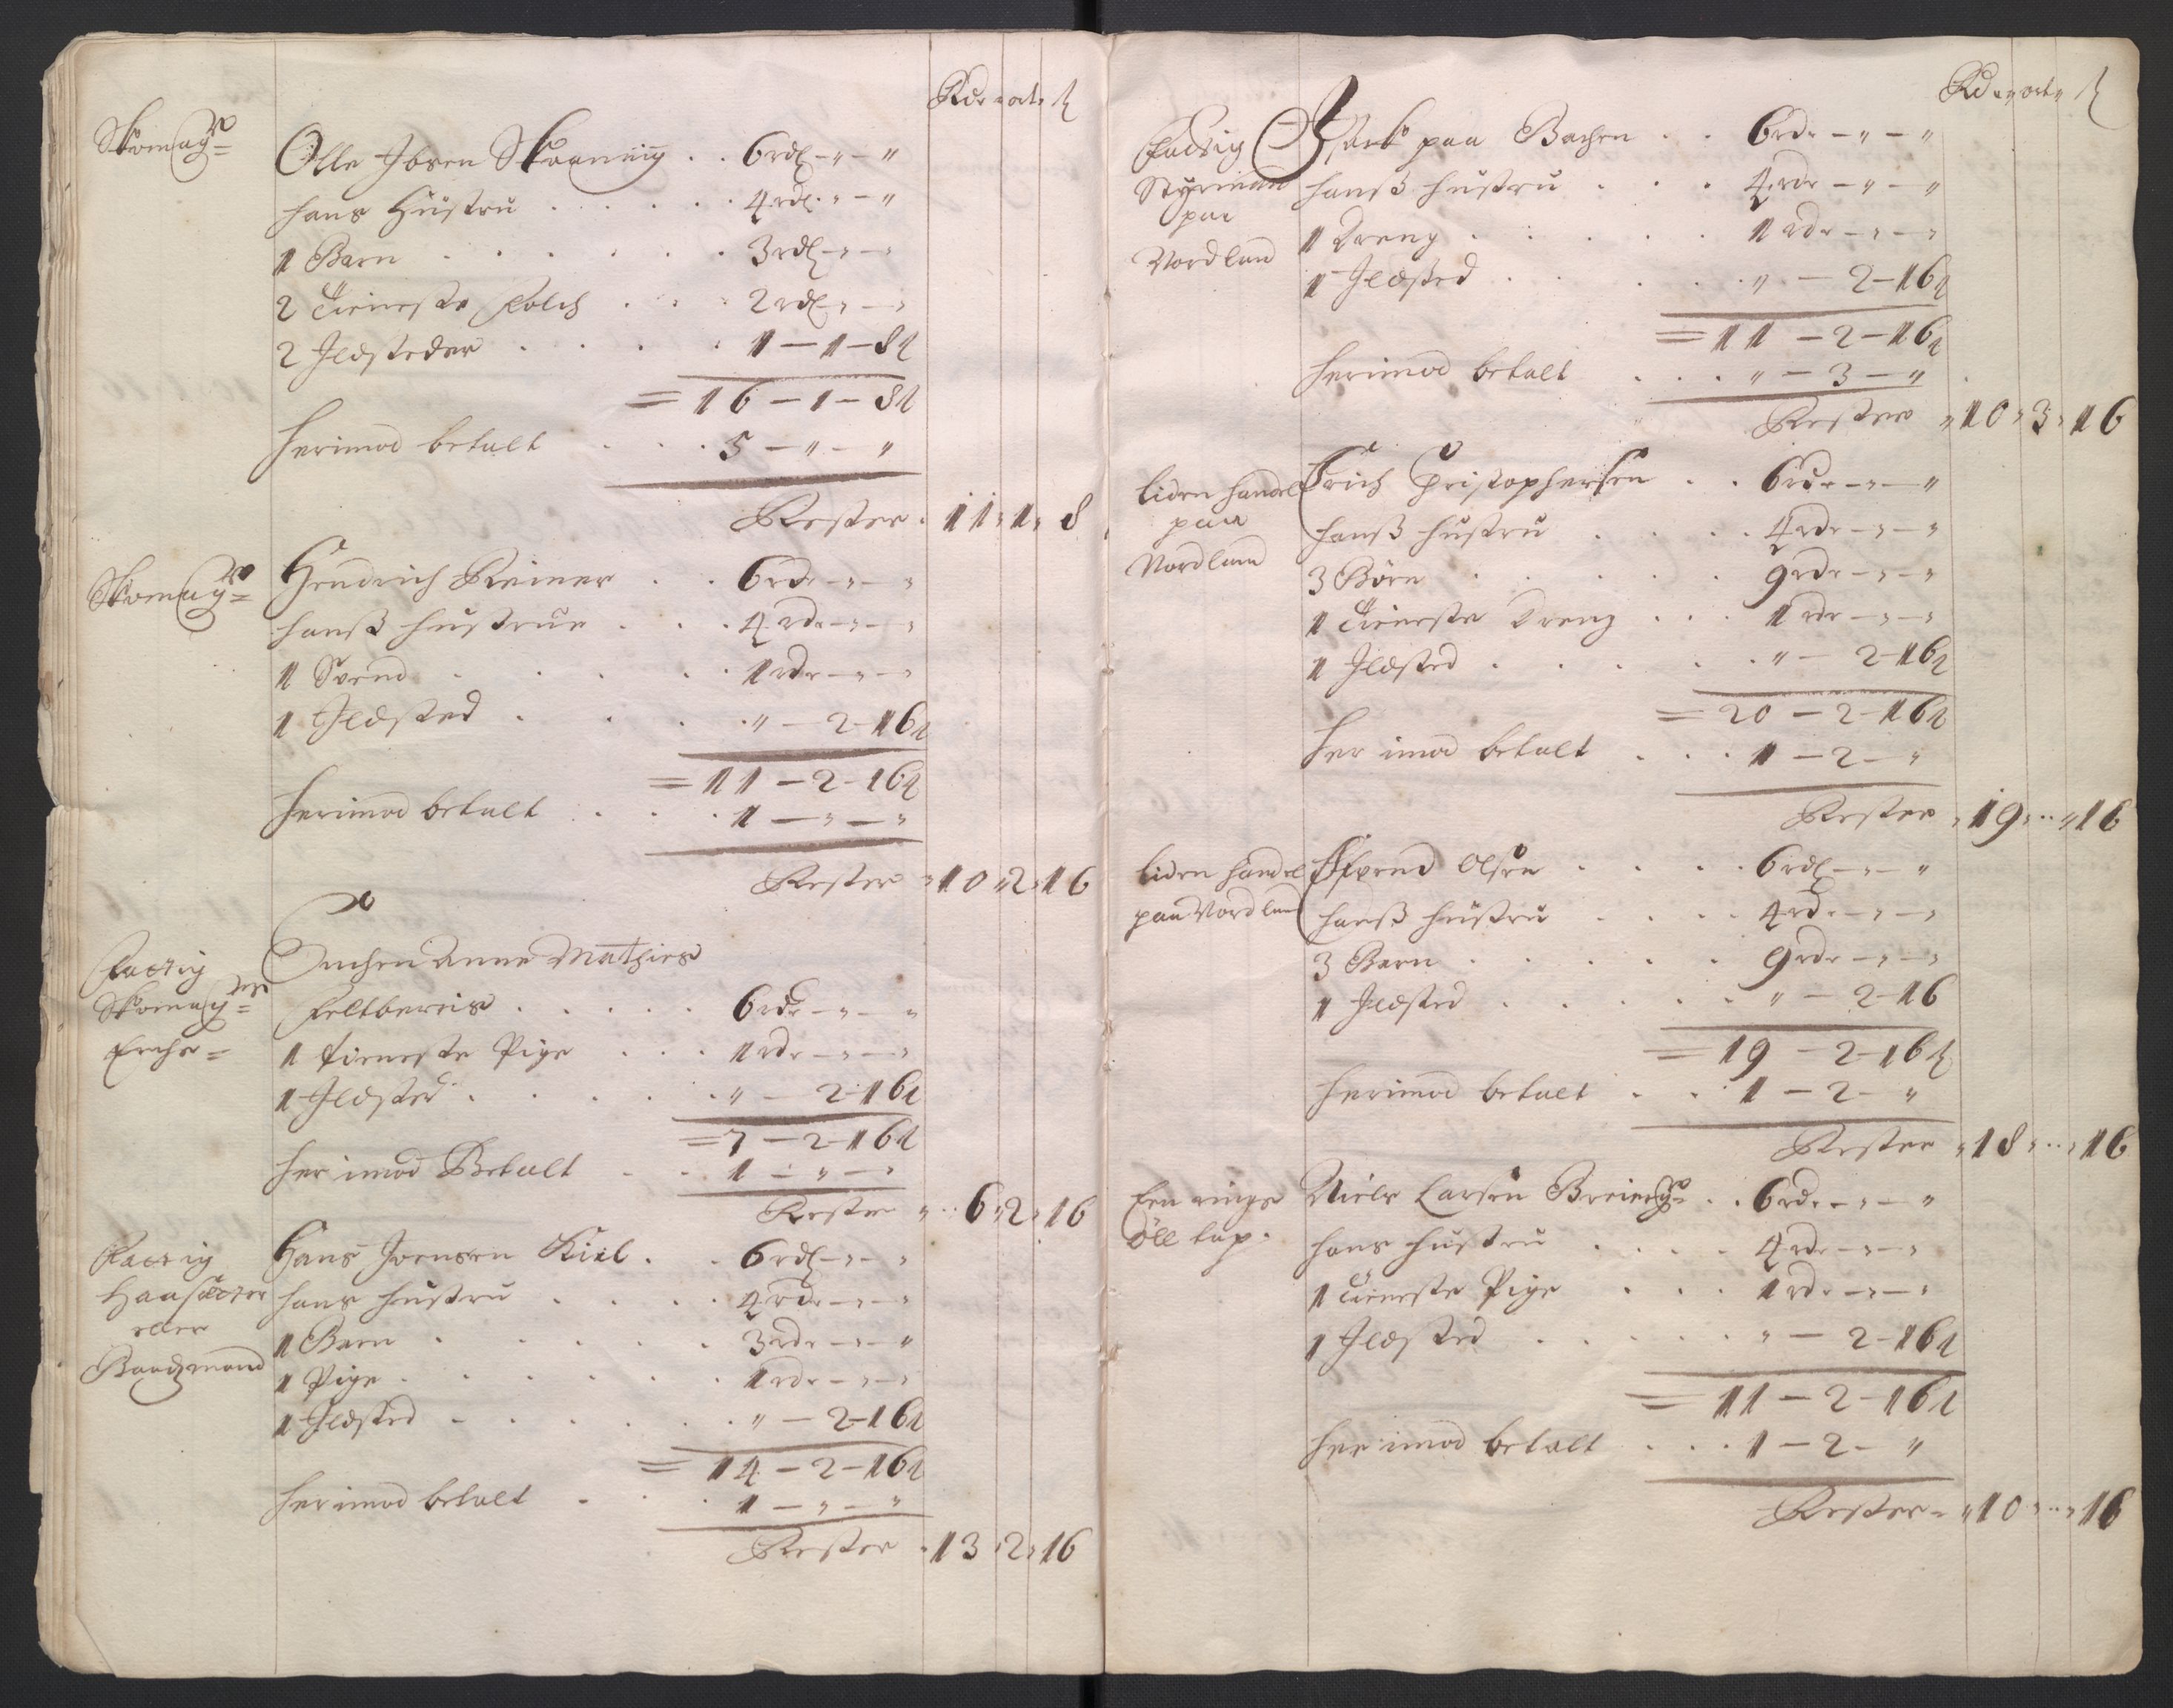 Rdr ort ß
Skomagr=
Olle Ibsen Skaaning . . 6 rdl - " - "
hans Hustru . . . . . 4 rdl - " - "
1 Barn . . . . . . 3 rdl - " - "
2 Tieneste Folch . . . 2 rdl - " - "
2 Ildsteder . . . . 1 - 1 - 8ß
= 16 - 1 - 8ß
herimod betalt . . . 5 - " - "
Rester . 11 " 1 " 8
Skomagr=
Hendrich Reimer . . 6 rdr - " - "
hanß hustrue . . . 4 rdr - " - "
1 Svend . . . . . 1 rdr - " - "
1 Ildsted . . . . " - 2 - 16ß
= 11 - 2 - 16ß
herimod betalt . . . 1 - " - "
Rester " 10 " 2 " 16
Fattig
Skomagers=
Enche=
Enchen Anne Mathies
Feltbereis . . . . . 6 rdr - " - "
1 tieneste Pige . . . 1 rdr - " - "
1 Ildsted . . . . . " - 2 - 16ß
= 7 - 2 - 16ß
her imod Betalt . . 1 - " - "
Rester " . . 6 " 2 " 16
Fattig
Haasætter
eller
Baadzmand
Hans Joensen Kiil . . 6 rdl - " - "
hans hustru . . . . 4 rdr - " - "
1 Barn . . . . . . 3 rdr - " - "
1 Pige . . . . . . 1 rdr - " - "
1 Ildsted . . . . . " - 2 - 16ß
= 14 - 2 - 16ß
herimod betalt . . . 1 - " - "
Rester " 13 " 2 " 16
Rdr " ort " ß
Fattig
Styrmand
paa
Nordland
paa Bachen . . 6 rdr - " - "
hanß hustru . . . 4 rdr - " - "
1 Dreng . . . . . 1 rdr - " - "
1 Ildsted . . . . " - 2 - 16ß
= 11 - 2 - 16ß
herimod betalt . . . " - 3 - "
Rester " 10 " 3 " 16
liden handel
paa
Nordland
Erich Christophersen . . 6 rdr - " - "
hanß hustru . . . . 4 rdr - " - "
3 Börn . . . . . 9 rdr - " - "
1 Tieneste Dreng . . . 1 rdr - " - "
1 Ildsted . . . . . " - 2 - 16ß
= 20 - 2 - 16ß
her imod betalt . . . 1 - 2 - "
Rester " 19 " . . " 16
liden handel
paa Nordland
Olsen . . . . 6 rdl - " - "
hanß hustru . . . . 4 rdr - " - "
3 Barn . . . . . 9 rdr - " - "
1 Ildsted . . . . . " - 2 - 16
= 19 - 2 - 16ß
herimod betalt . . . 1 - 2 - "
Rester " 18 " . . " 16
Een ringe
Öll tap .
Niels Larsen . . 6 rdr - " - "
hans hustru . . . . 4 rdr - " - "
1 Tieneste Pige . . . 1 rdr - " - "
1 Ildsted . . . . . " - 2 - 16ß
= 11 - 2 - 16ß
her imod betalt . . . 1 - 2 - "
Rester " 10 " . . " 16